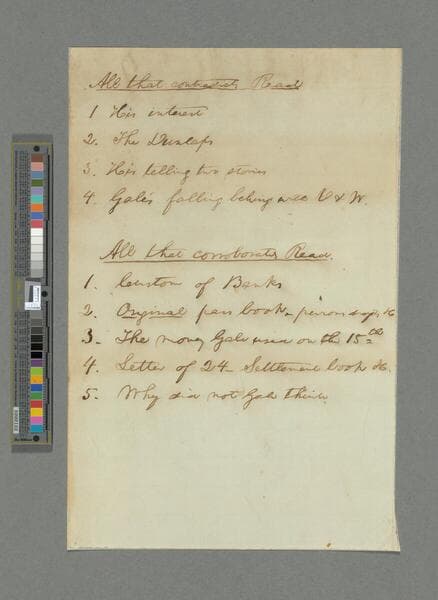 All that contradicts Read
1 His interest
2. The Dunlaps
3. His telling two stories
4. Gale's falling behind
All that corroborates Read.
1. Custom of Banks
2. Original pass book &c
3. The money Gale used on the 15th
4. Letter of 24 Settlement book &c.
5. Why did not Gale think